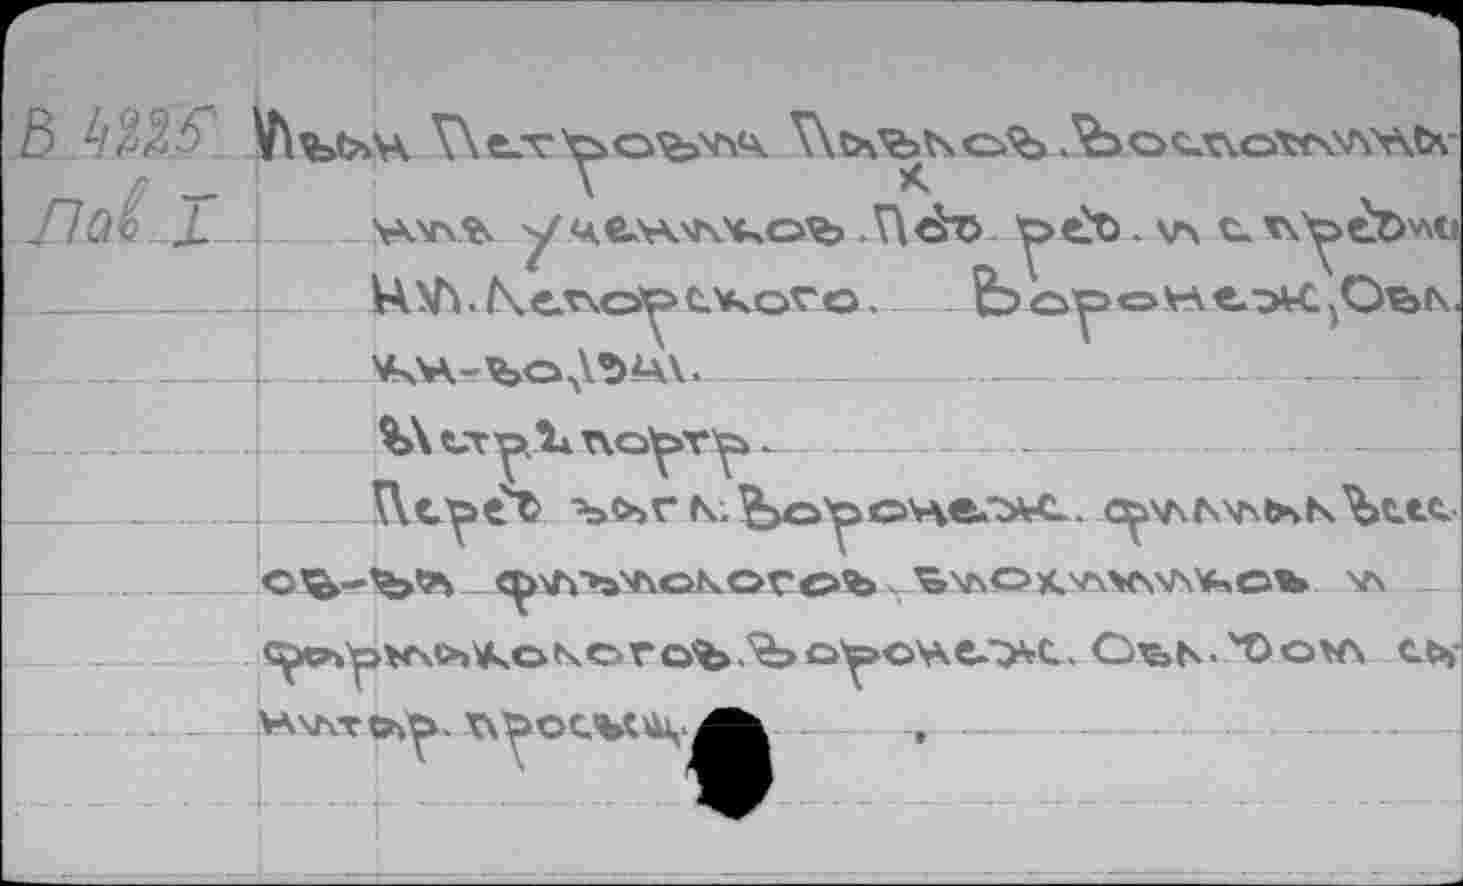 В 4225 Иван Петрович Павлов. Воспомина-
Пав I ния учеников. Под ред. и с предис
Н.И. Лепорского. Воронеж, Обл.
кн-во, 1941.
91 стр. 1 портр.
Перед загл.: Воронежс. филиал Всес.
об-ва физиологов, биохимиков и
фармакологов. Воронежс. Обл. Дом са-
нитар. просвещ.